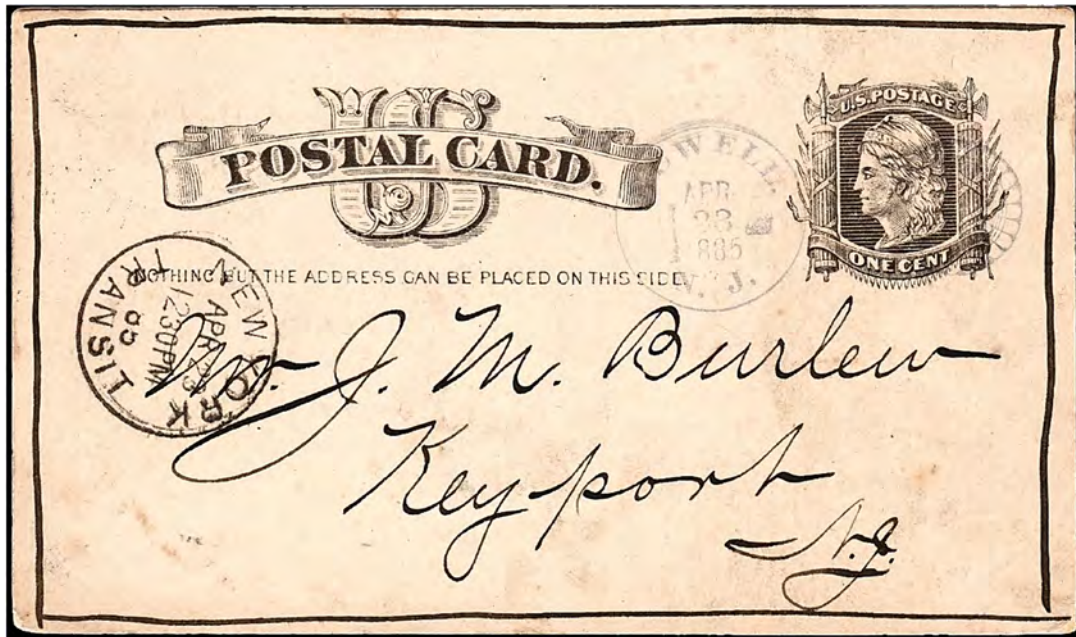 U.S. POSTAGE
US
POSTAL CARD.
WELL
APR
23
1885
N. J.
ONE CENT
NOTHING BUT THE ADDRESS CAN BE PLACED ON THIS SIDE.
NEW YORK
APR 23
1230PM
85
TRANSIT
Mr. J. M. Burlew
Keyport
N.J.